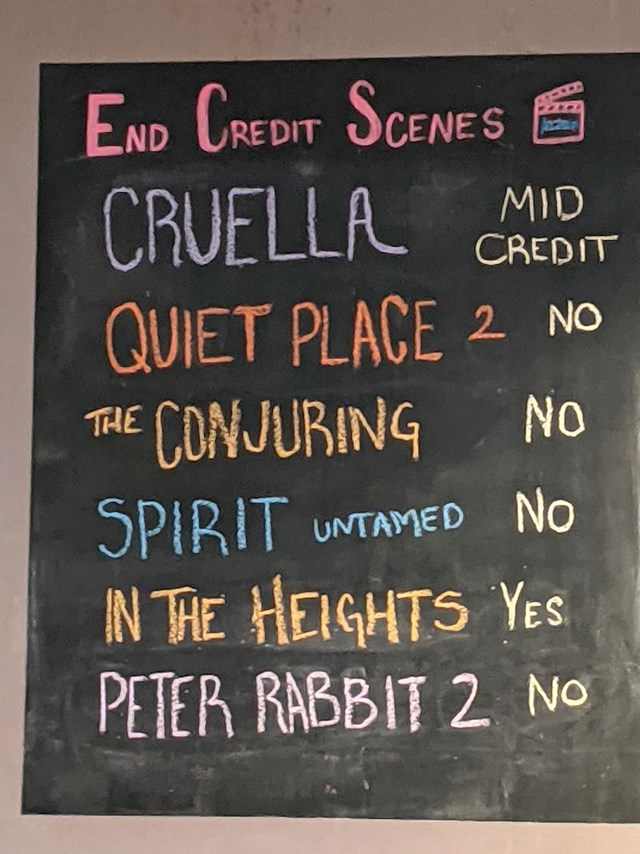 END CREDIT SCENES
CRUELLA MID CREDIT
QUIET PLACE 2 NO
THE CONJURING NO
SPIRIT UNTAMED NO
IN THE HEIGHTS YES
PETER RABBIT 2 NO